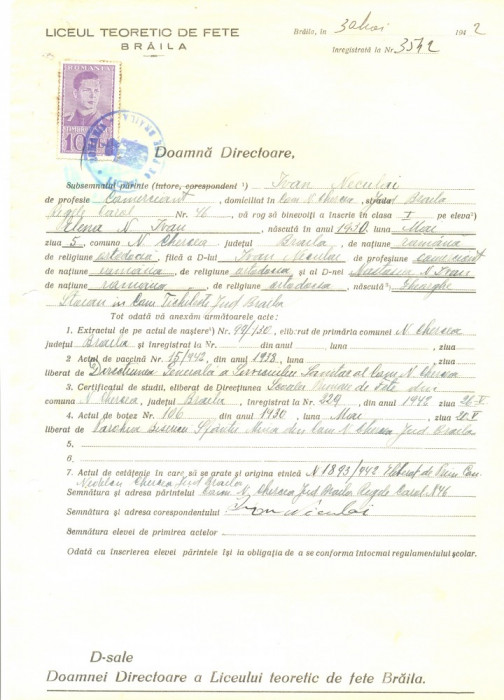 LICEUL TEORETIC DE FETE
BRĂILA
Brăila, în 30 Mai 1942
înregistrată la Nr. 3542
ROMANIA
TIMBRU
10
Doamnă Directoare,
Subsemnatul părinte (tutore, corespondent ¹) Ivan Neculai
de profesie Comerciant, domiciliat în Com N Chercea, strada Braila
Regele Carol Nr. 46 vă rog să binevoiți a înscrie în clasa I pe eleva²)
Elena N Ivan, născută în anul 1930, luna Mai
ziua 5, comuna N. Chercea județul Braila, de națiune română
de religiune ortodoxa, fiică a D-lui Ivan Neculai de profesie comerciant
de națiune romana, de religiune ortodoxa, și al D-nei Nastasia N. Ivan
de națiune romana, de religiune ortodoxa, născută³) Gheorghe
Staran in Com Tichilesti Jud Braila
Tot odată vă anexăm următoarele acte:
1. Extractul de pe actul de naștere⁴) Nr. 49/130, eliberat de primăria comunei N. Chercea
județul Braila și înregistrat la Nr. din anul luna ziua
2 Actul de vaccină Nr. 15/942, din anul 1938, luna ziua
liberat de Directiunea Generală a Serviciului Sanitar al Com N. Chercea
3. Certificatul de studii, eliberat de Direcțiunea Scoalei Primare de Fete din
comuna N Chercea, județul Braila, înregistrat la Nr. 329, din anul 1942 ziua 28-V
4. Actul de botez Nr. 106 din anul 1930 luna Mai ziua 28.V
liberat de Parohia Biserica Sfântu Mina din Com N. Chercea Jud Braila
5.
6.
7. Actul de cetățenie în care să se arate și origina etnică N 1893/942 Eliberat de Prim Com.
Nicolae Chercea Jud Braila
Semnătura și adresa părintelui Com N. Chercea Jud Braila Regele Carol N 46
Semnătura și adresa corespondentului Ivan Niculai
Semnătura elevei de primirea actelor
Odată cu înscrierea elevei părintele își ia obligația de a se conforma întocmai regulamentului școlar.
D-sale
Doamnei Directoare a Liceului teoretic de fete Brăila.